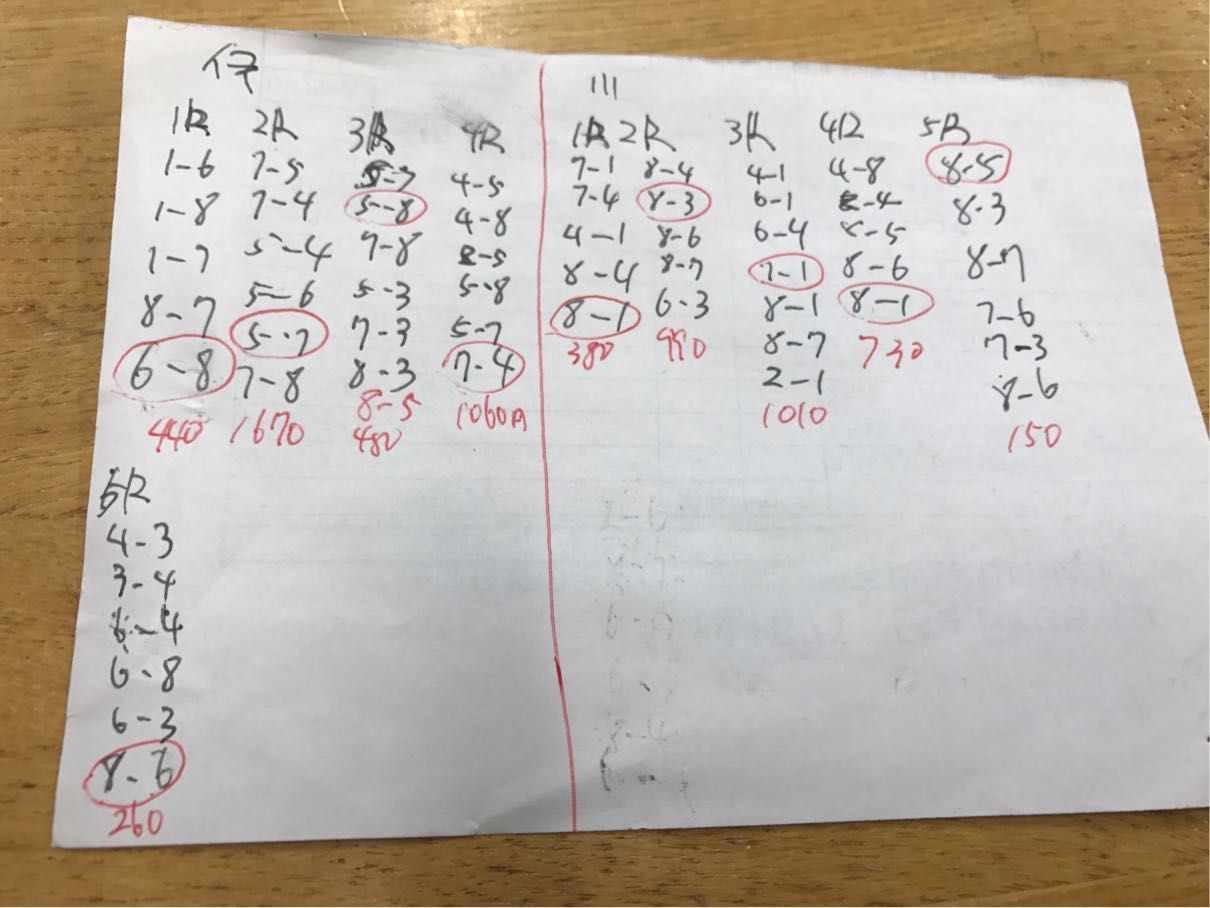 伊
1R
1-6
1-8
1-7
8-7
6-8
440
2R
7-5
7-4
5-4
5-6
5-7
7-8
1670
3R
5-7
5-8
7-8
5-3
7-3
8-3
8-5
480
4R
4-5
4-8
8-5
5-8
5-7
7-4
1060円
5R
4-3
3-4
6-4
6-8
6-3
8-6
260
川
1R
7-1
7-4
4-1
8-4
8-1
380
2R
8-4
8-3
8-6
8-7
6-3
990
3R
4-1
6-1
6-4
7-1
8-1
8-7
2-1
1010
4R
4-8
8-4
8-5
8-6
8-1
730
5R
8-5
8-3
8-7
7-6
7-3
8-6
150